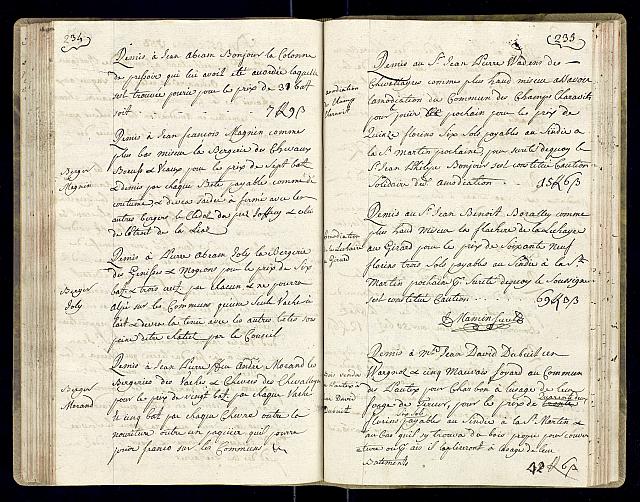 234
Remis à Jean Abram Bonjour la Colonne
de pressoir qui lui avoit été accordée laquelle
s'est trouvée pourrie pour le prix de 31 batz
soit 7 fl 9 ß
Berger
Magnin
Remis à Jean francois Magnin comme
plus bas miseur la Bergerie des Chevaux
Boeufs & Veaux pour le prix de Sept batz
& demis par chaque Bete payable comme de
coutume, & devra s'aider à firmer avec les
autres Bergers le Cledal
de l'étent de la Lial
Berger
Joly
Remis à Pierre Abram Joly la Bergerie
des Genisses & Mogeons pour le prix de Six
batz & trois creutz par chacun & ne pourra
alper sur les Communs qu'une Seule Vache à
lait & devra la tenir avec les autres betes sous
peine d'etre chatié par le Conseil
Berger
Morand
Remis à Jean Pierre feu André Morand les
Bergeries des Vaches & Chevres des Chevalleyres
pour le prix de vingt batz par chaque Vache
& cinq batz par chaque Chevre outre la
nourriture outre un paquier qu'il pourra
jouir franco sur les Communs
235
amodiation
Remis au Sr. Jean Pierre Wadens des
Chevalleyres comme plus haud miseur
l'amodiation du Commun des Champs Charavets
pour jouir l'an prochain pour le prix de
Quinze florins Six Sols payable au Sindic à
la St. Martin prochaine, pour sureté dequoy le
Sr. Jean Philipe Bonjour s'est constitué Caution
Solidaire de l'amodiation 15 fl 6 ß
amodiation
Girard
Remis au Sr. Jean Benoit Boralley comme
plus haud miseur la flachere de la
au Girard pour le prix de Soixante neuf
florins trois Sols payable au Sindic à la St.
Martin prochain Pr. Sureté dequoy le Soussigné
s'est constitué Caution 69 fl 3 ß
Mamin
Bois vendu
Pautex à
Jean David
Dubuit
Remis à Mtre Jean David Dubuit un
Wargnot & cinq Mauvais foyard au Commun
des Pautex pour Charbon à l'usage de leur
forge des Gireux, pour le prix de trente quarante deux
florins Six Sols payables au Sindic à la St. Martin &
au Cas qu'il s'y trouva du bois propre pour couver-
ture ou & ais il l'apliqueront à l'usage de leur
Batiments 42 fl 6 ß